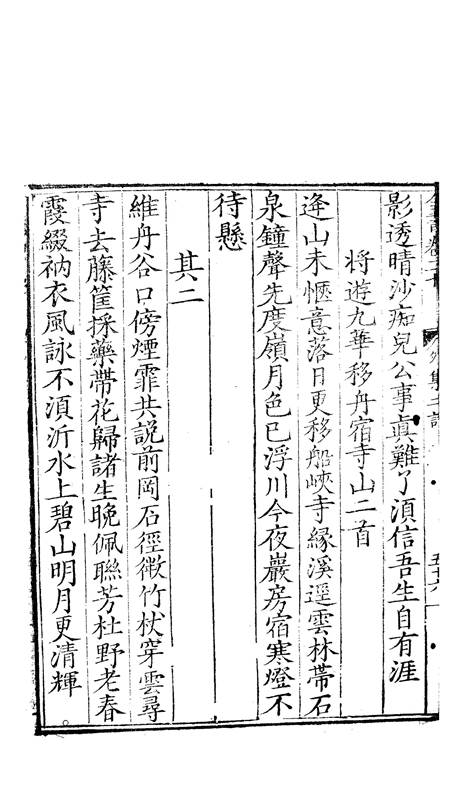 影透晴沙痴兒公事真難了須信吾生自有涯
將遊九華移舟宿寺山二首
逢山未愜意落日更移船峽寺緣溪逕雲林帶石
泉鐘聲先度嶺月色已浮川今夜巖房宿寒燈不
待懸
其二
維舟谷口傍煙霏共説前岡石徑微竹杖穿雲尋
寺去藤筐採藥帶花歸諸生晚佩聯芳杜野老春
霞綴衲衣風詠不須沂水上碧山明月更清輝